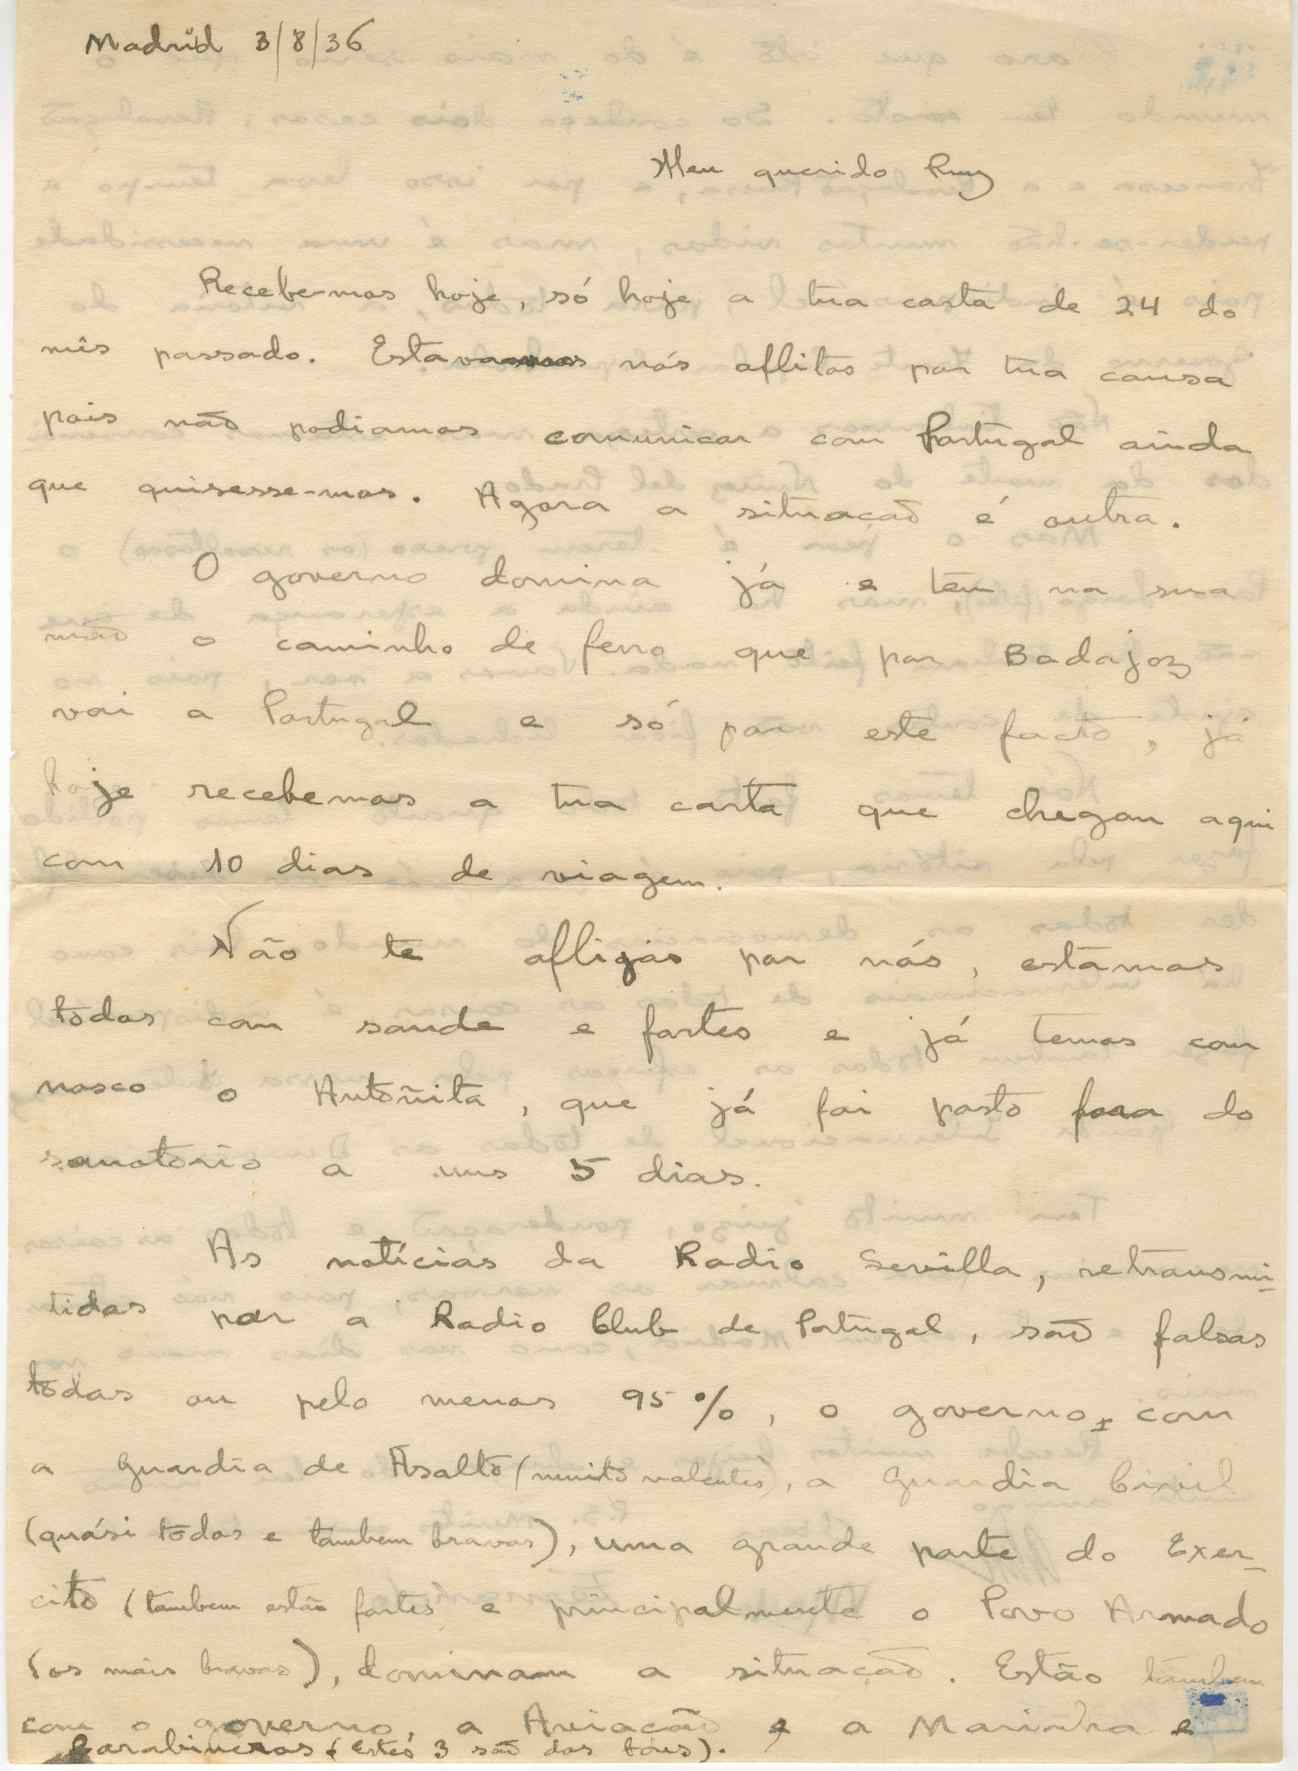 Madrid 3/8/36
Meu querido Ruy
Recebe-mos hoje, só hoje a tua carta de 24 do
mês passado. Estavamos nós aflitos por tua causa
pois não podiamos comunicar com Portugal ainda
que quisesse-mos. Agora a situacão é outra.
O governo domina já e tem na sua
mão o caminho de ferro que por Badajoz
vai a Portugal e só por este facto, já
hoje recebemos a tua carta que chegou aqui
com 10 dias de viagem.
Não te aflijas por nós, estamos
todos com saude e fortes e já temos com
nosco o Antoñita, que já foi posto fora do
sanatorio a uns 5 dias.
As notícias da Radio Sevilla, retransmi-
tidas por a Radio Club de Portugal, são falsas
todas ou pelo menos 95%, o governo, com
a Guardia de Asalto (muito valentes), a Guardia Civil
(quási todos e tambem bravos), uma grande parte do Exer-
cito (tambem estão fortes e principalmente o Povo Armado
(os mais bravos), dominam a situação. Estão tambem
com o governo, a Aviacão e a Marinha e
Carabineros (estes 3 são dos bons).